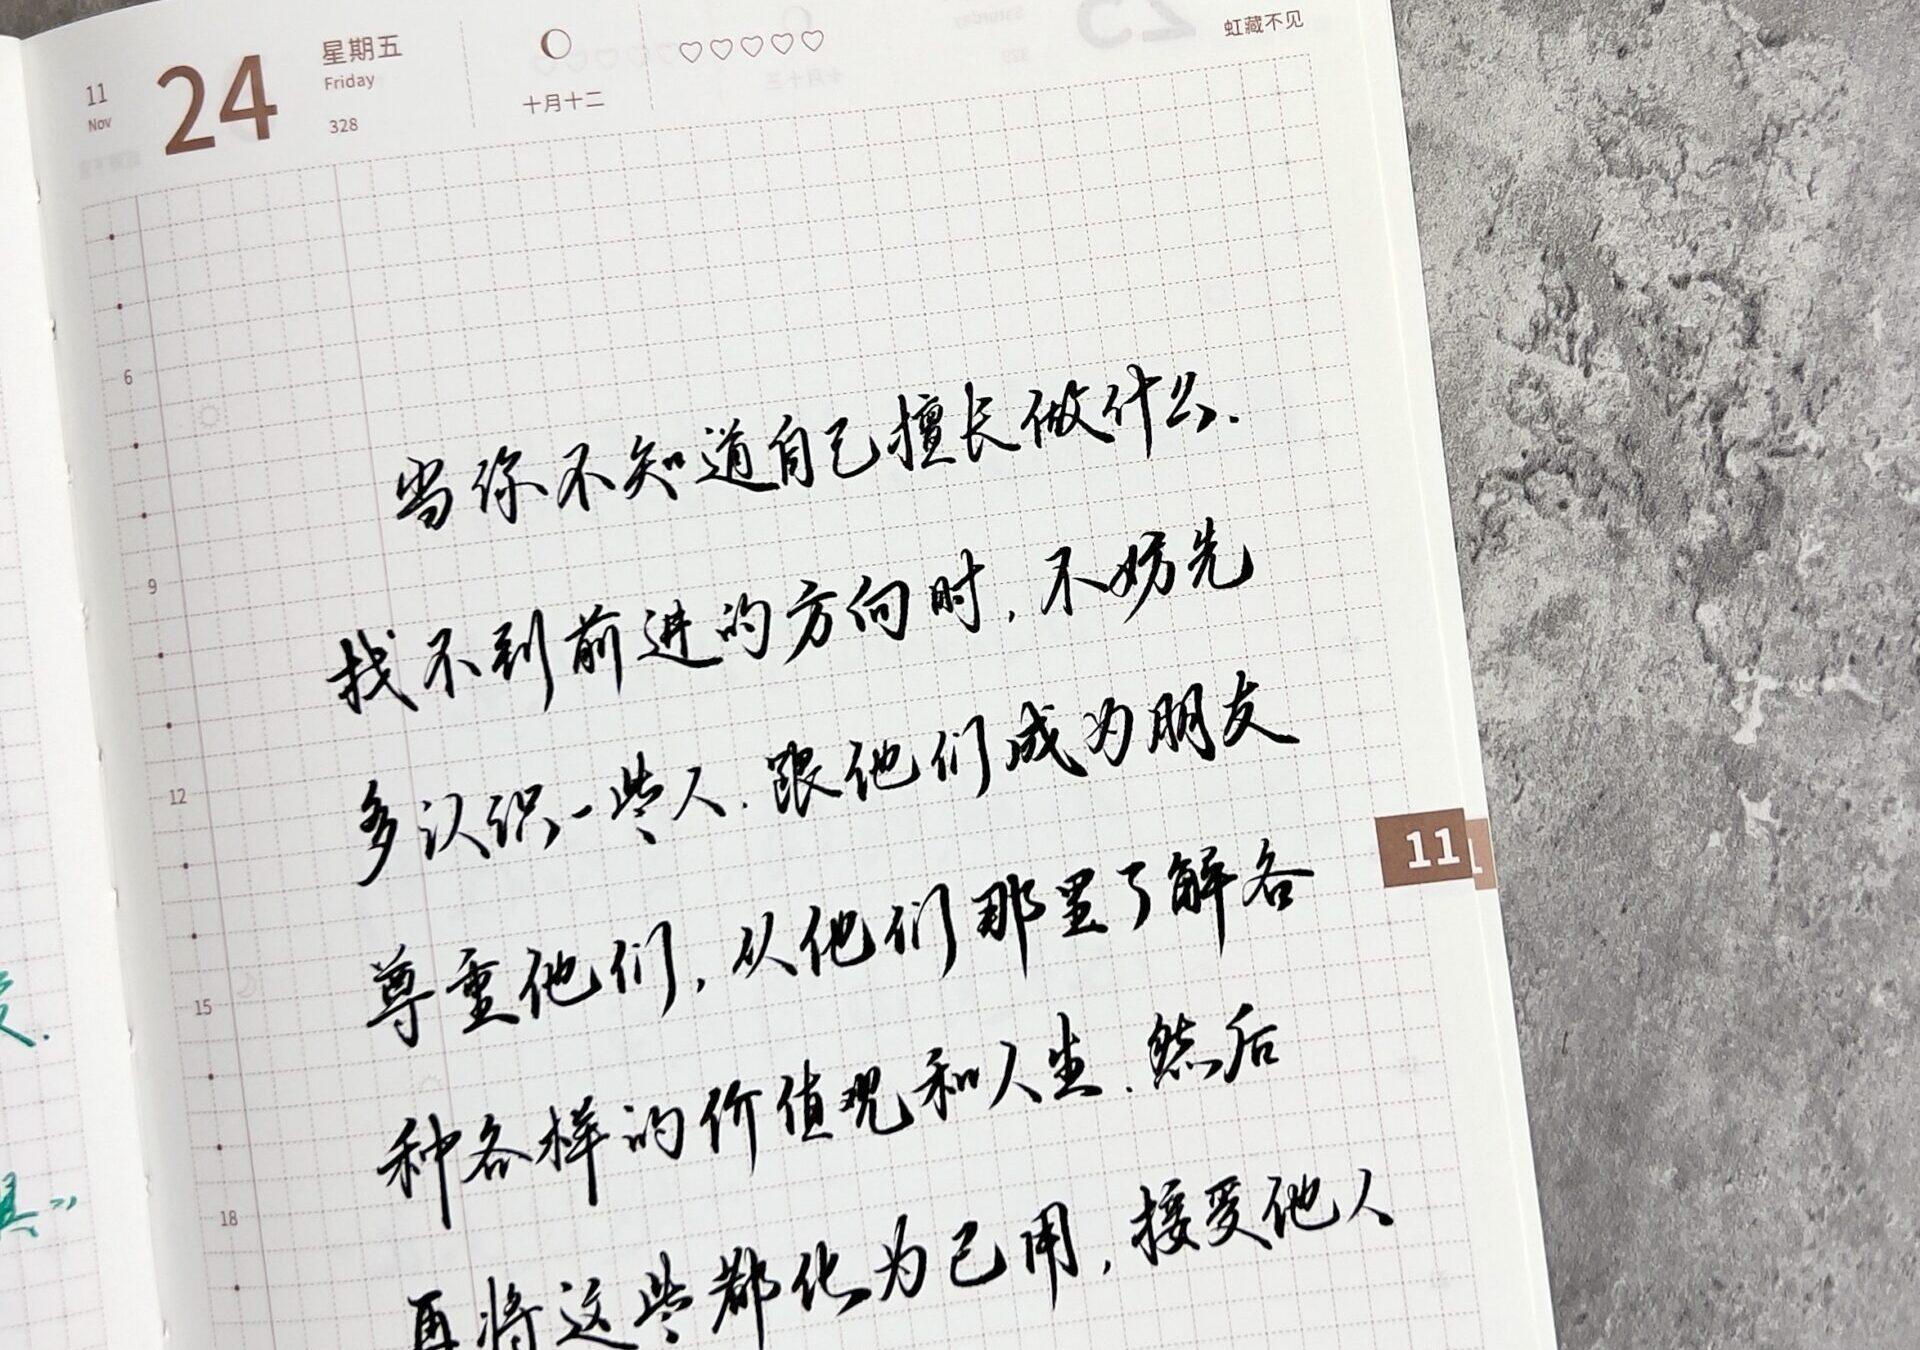 11
Nov
24
星期五
Friday
328
十月十二
虹藏不见
6
9
12
15
18
当你不知道自己擅长做什么.
找不到前进的方向时,不妨先
多认识一些人.跟他们成为朋友
尊重他们,从他们那里了解各
种各样的价值观和人生.然后
再将这些都化为己用,接受他人
11